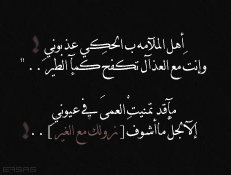 أهل الملامه ب الحكي عذبوني !
وانت مع العذآل تكفخ كمآ الطير .. "
مآقد تمنيت العمى في عيوني
إلآ لجل مآأشوف [ نزولك مع الغير ] .. !